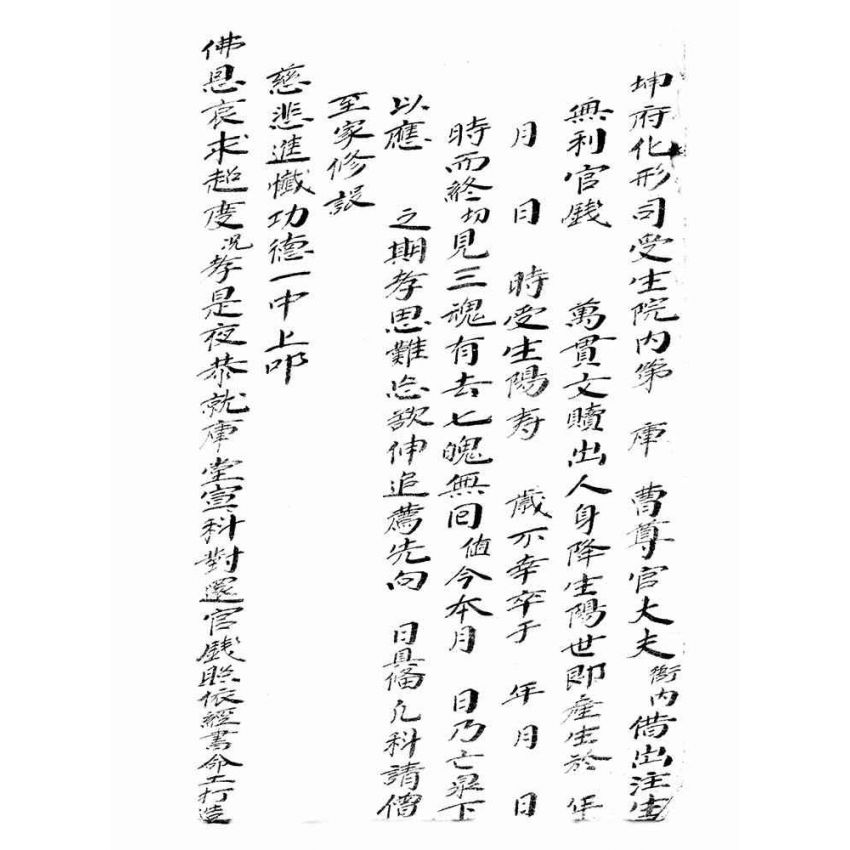 坤府化形司受生院内第 庫 曹尊官大夫衙内借出注生
無利官錢 萬貫文贖出人身降生陽世即產生於 年
月 日 時受生陽寿 歲不幸卒于 年 月 日
時而終切見三魂有去七魄無回值今本月 日乃亡泉下
以應 之期孝思難忘欲伸追薦先向 日具俻凡科請僧
至家修設
慈悲進懺功德一中上叩
佛恩哀求超度況孝是夜恭就庫堂宣科對還官錢照依經書命工打造